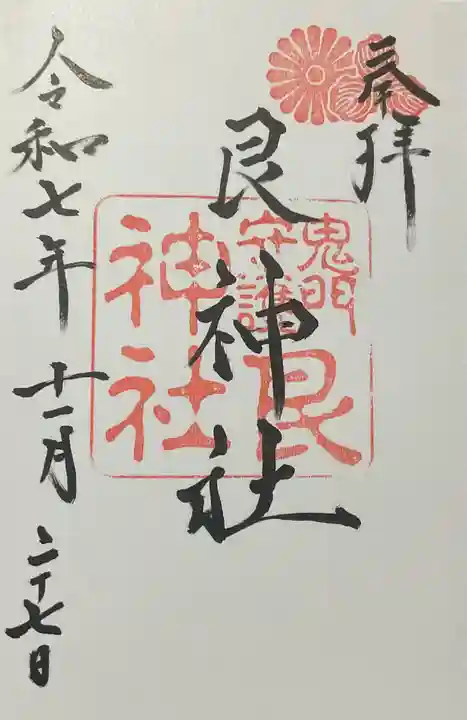 奉拝
艮神社
鬼門
守護
艮
神社
令和七年十一月二十七日